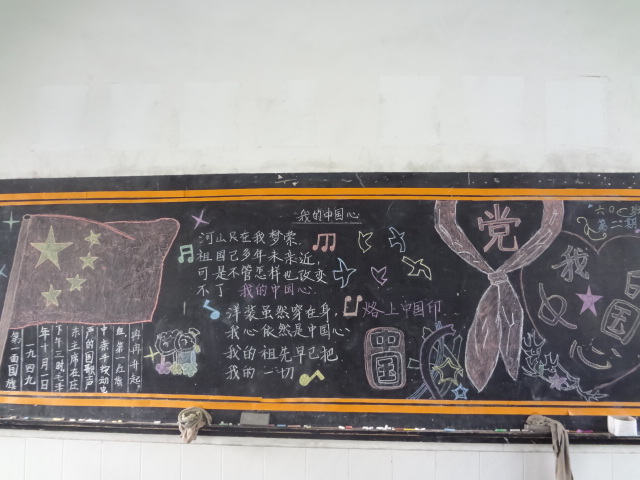 我的中国心
河山只在我梦萦
祖国已多年未亲近,
可是不管怎样也改变
不了 我的中国心
洋装虽然穿在身,
我心依然是中国心
我的祖先早已把
我的一切
烙上中国印
中国
党
我
中国心
一九四九
年十月一日
下午三时
毛主席在庄
声的国歌声
中亲手按动
冉冉升起